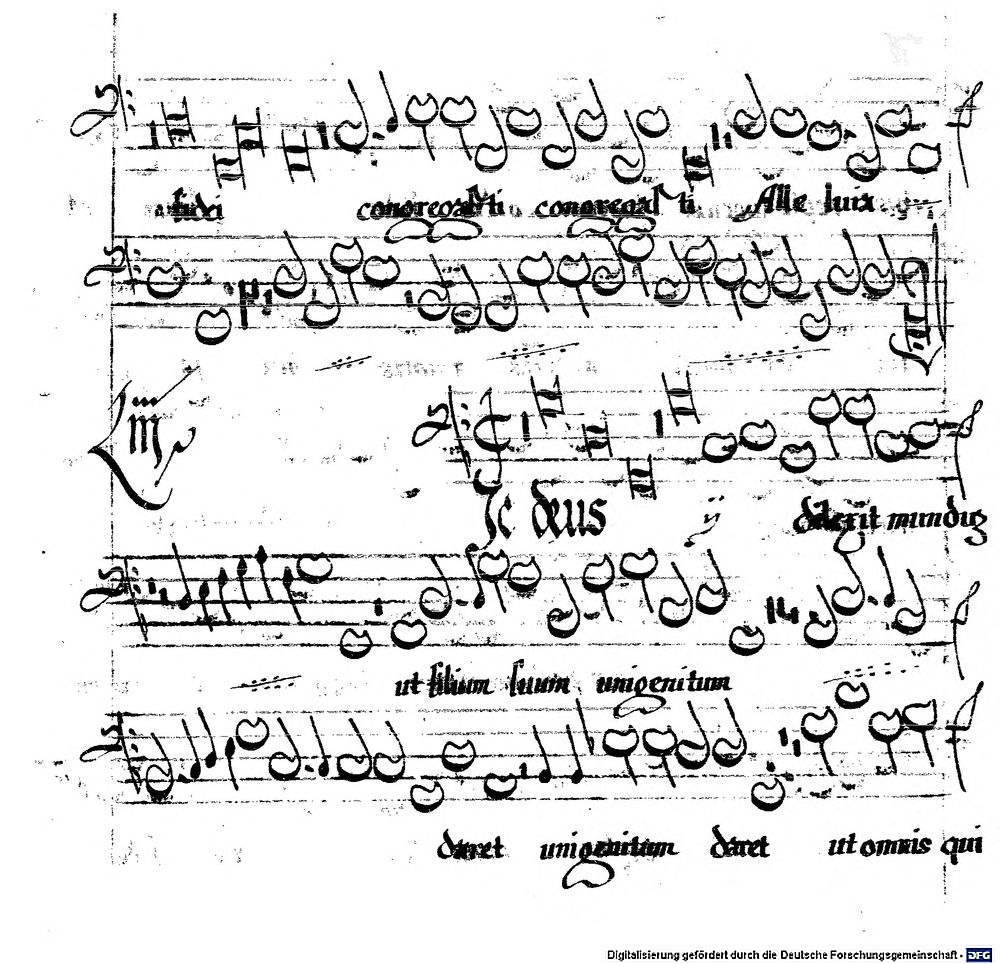 fidei congregasti congregasti Alleluia
iiij
Sic deus ij dilexit mundũ
ut filium suum unigenitum
daret unigenitum daret ut omnis qui
Digitalisierung gefördert durch die Deutsche Forschungsgemeinschaft - DFG